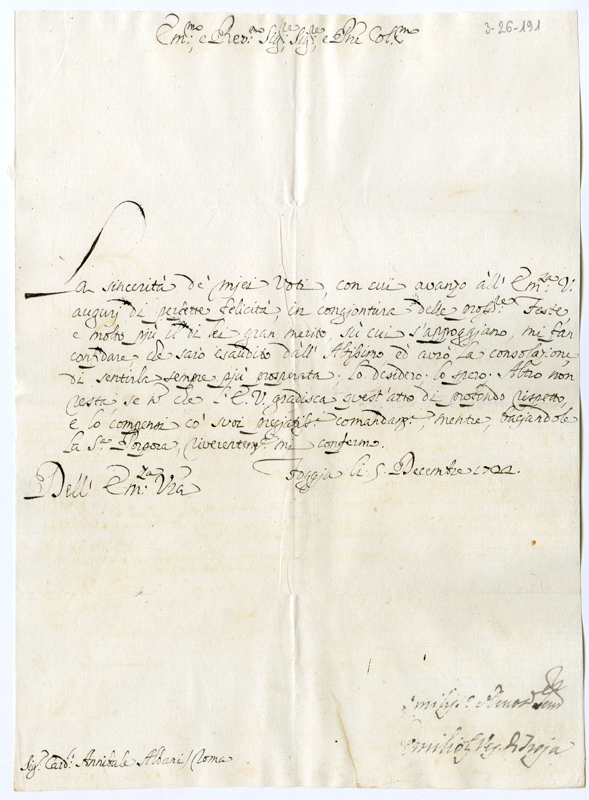 3-26-191
Em.mo, e Rev.mo Sig.re, Sig.re, e Pne Col.mo
La sincerità de' miei Voti, con cui avanzo all' Em.za V.
augurj di perfette felicità, in congiontura delle pross.me Feste,
e molto più il di lei gran merito, su cui s'appoggiano, mi fan
confidare che sarò esaudito dall' Altissimo ed avrò la consolazione
di sentirla sempre più prosperata; lo desidero, lo spero. Altro non
resta, se n' che l' E. V. gradisca quest'atto di profondo rispetto,
e lo compensi co' suoi pregiatis.i comandam.i, mentre, bagiandole
la S. Porpora, riverentem.e mi confermo.
Foggia li 5 Decembre 1722.
Dell' Em.za Vra
Umiliss.
Emilio Ves. di Troja
Sig. Card. Annibale Albani / Roma